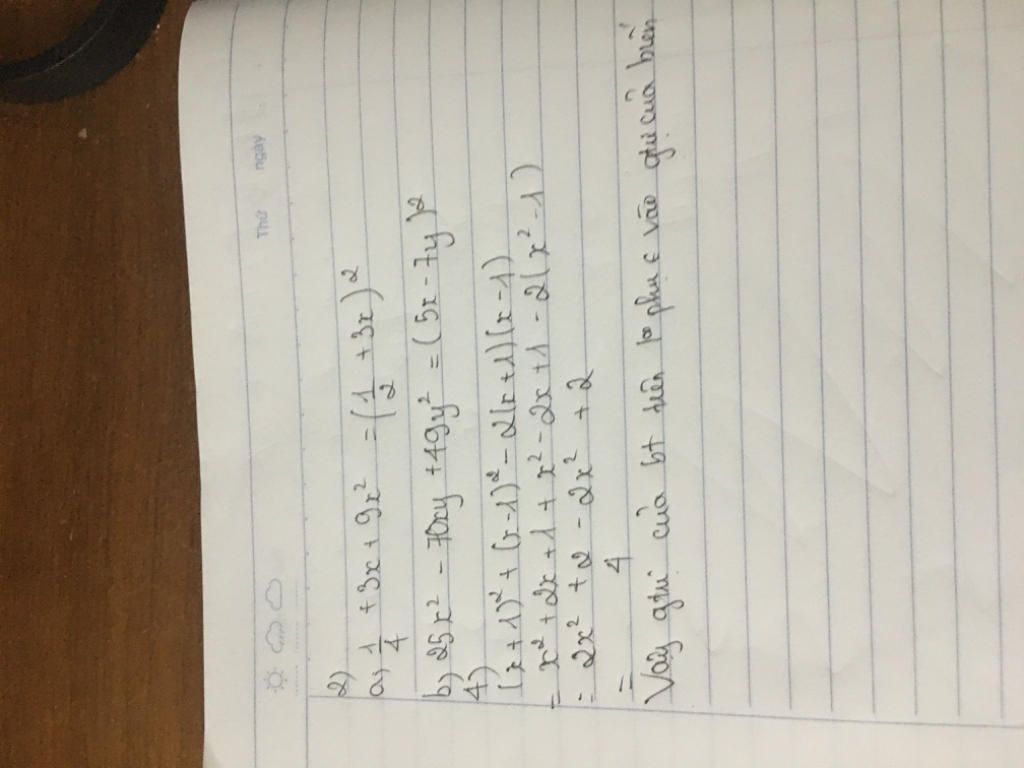 Thứ ngày
2)
a) 1/4 + 3x + 9x² = (1/2 + 3x)²
b) 25x² - 70xy + 49y² = (5x - 7y)²
4)
(x + 1)² + (x - 1)² - 2(x + 1)(x - 1)
= x² + 2x + 1 + x² - 2x + 1 - 2(x² - 1)
= 2x² + 2 - 2x² + 2
= 4
Vậy gtri của bt trên ko phụ ∈ vào gtri của biến